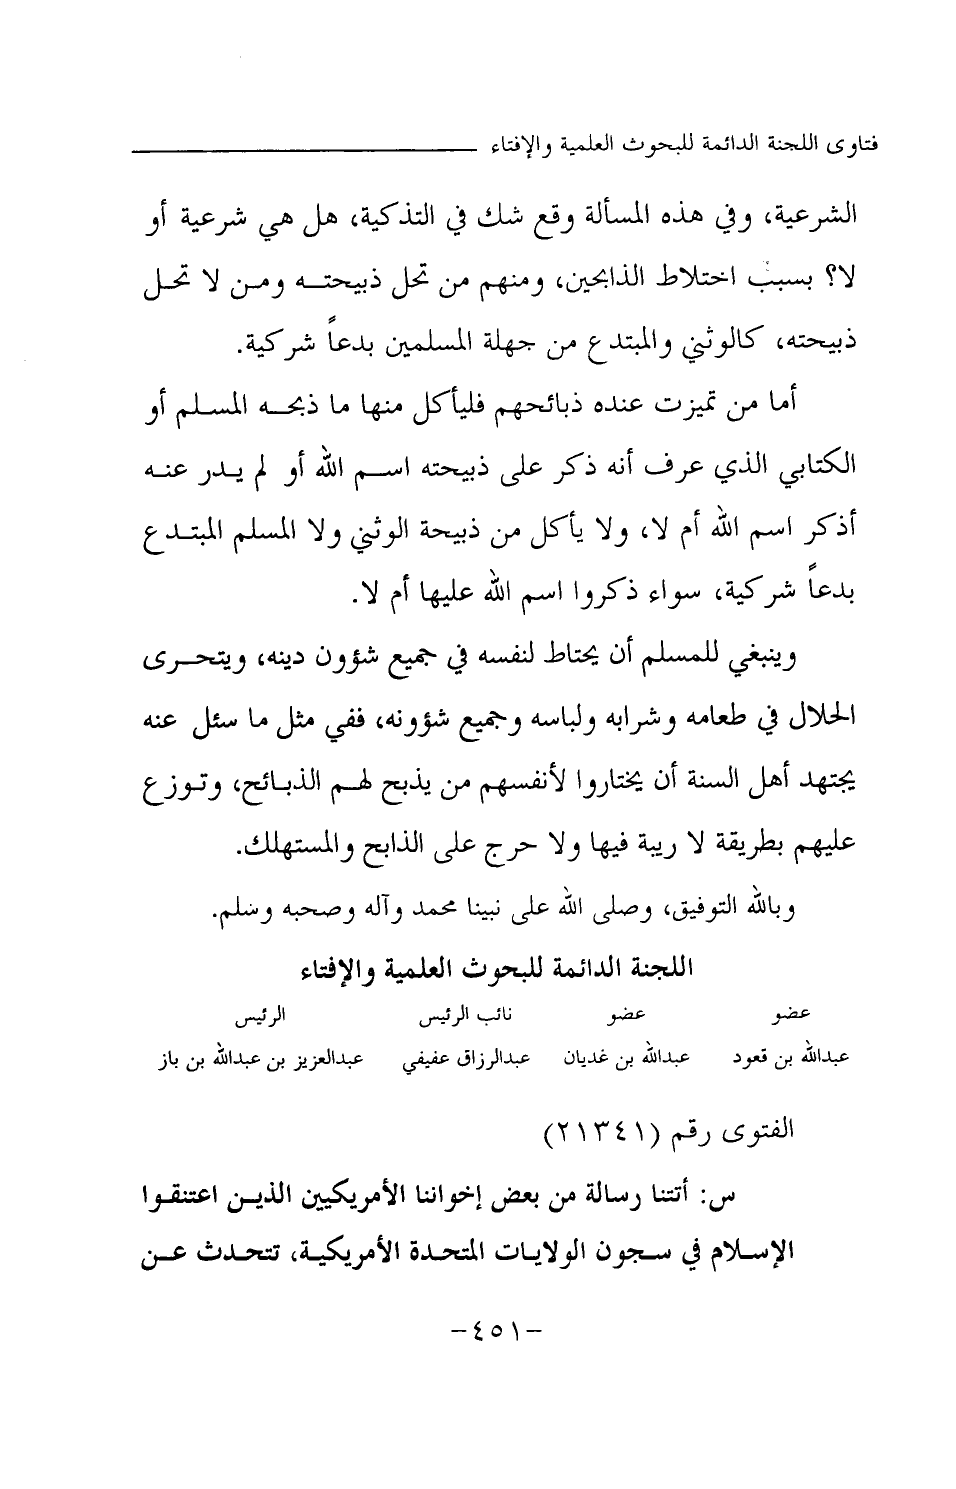 فتاوى اللجنة الدائمة للبحوث العلمية والإفتاء
الشرعية، وفي هذه المسألة وقع شك في التذكية، هل هي شرعية أو
لا؟ بسبب اختلاط الذابحين، ومنهم من تحل ذبيحته ومن لا تحل
ذبيحته، كالوثني والمبتدع من جهلة المسلمين بدعاً شركية.
أما من تميزت عنده ذبائحهم فليأكل منها ما ذبحه المسلم أو
الكتابي الذي عرف أنه ذكر على ذبيحته اسم الله أو لم يدر عنه
أذكر اسم الله أم لا، ولا يأكل من ذبيحة الوثني ولا المسلم المبتدع
بدعاً شركية، سواء ذكروا اسم الله عليها أم لا.
وينبغي للمسلم أن يحتاط لنفسه في جميع شؤون دينه، ويتحرى
الحلال في طعامه وشرابه ولباسه وجميع شؤونه، ففي مثل ما سئل عنه
يجتهد أهل السنة أن يختاروا لأنفسهم من يذبح لهم الذبائح، وتوزع
عليهم بطريقة لا ريبة فيها ولا حرج على الذابح والمستهلك.
وبالله التوفيق، وصلى الله على نبينا محمد وآله وصحبه وسلم.
اللجنة الدائمة للبحوث العلمية والإفتاء
عضو عضو نائب الرئيس الرئيس
عبدالله بن قعود عبدالله بن غديان عبدالرزاق عفيفي عبدالعزيز بن عبدالله بن باز
الفتوى رقم (٢١٣٤١)
س: أتتنا رسالة من بعض إخواننا الأمريكيين الذين اعتنقوا
الإسلام في سجون الولايات المتحدة الأمريكية، تتحدث عن
-٤٥١-